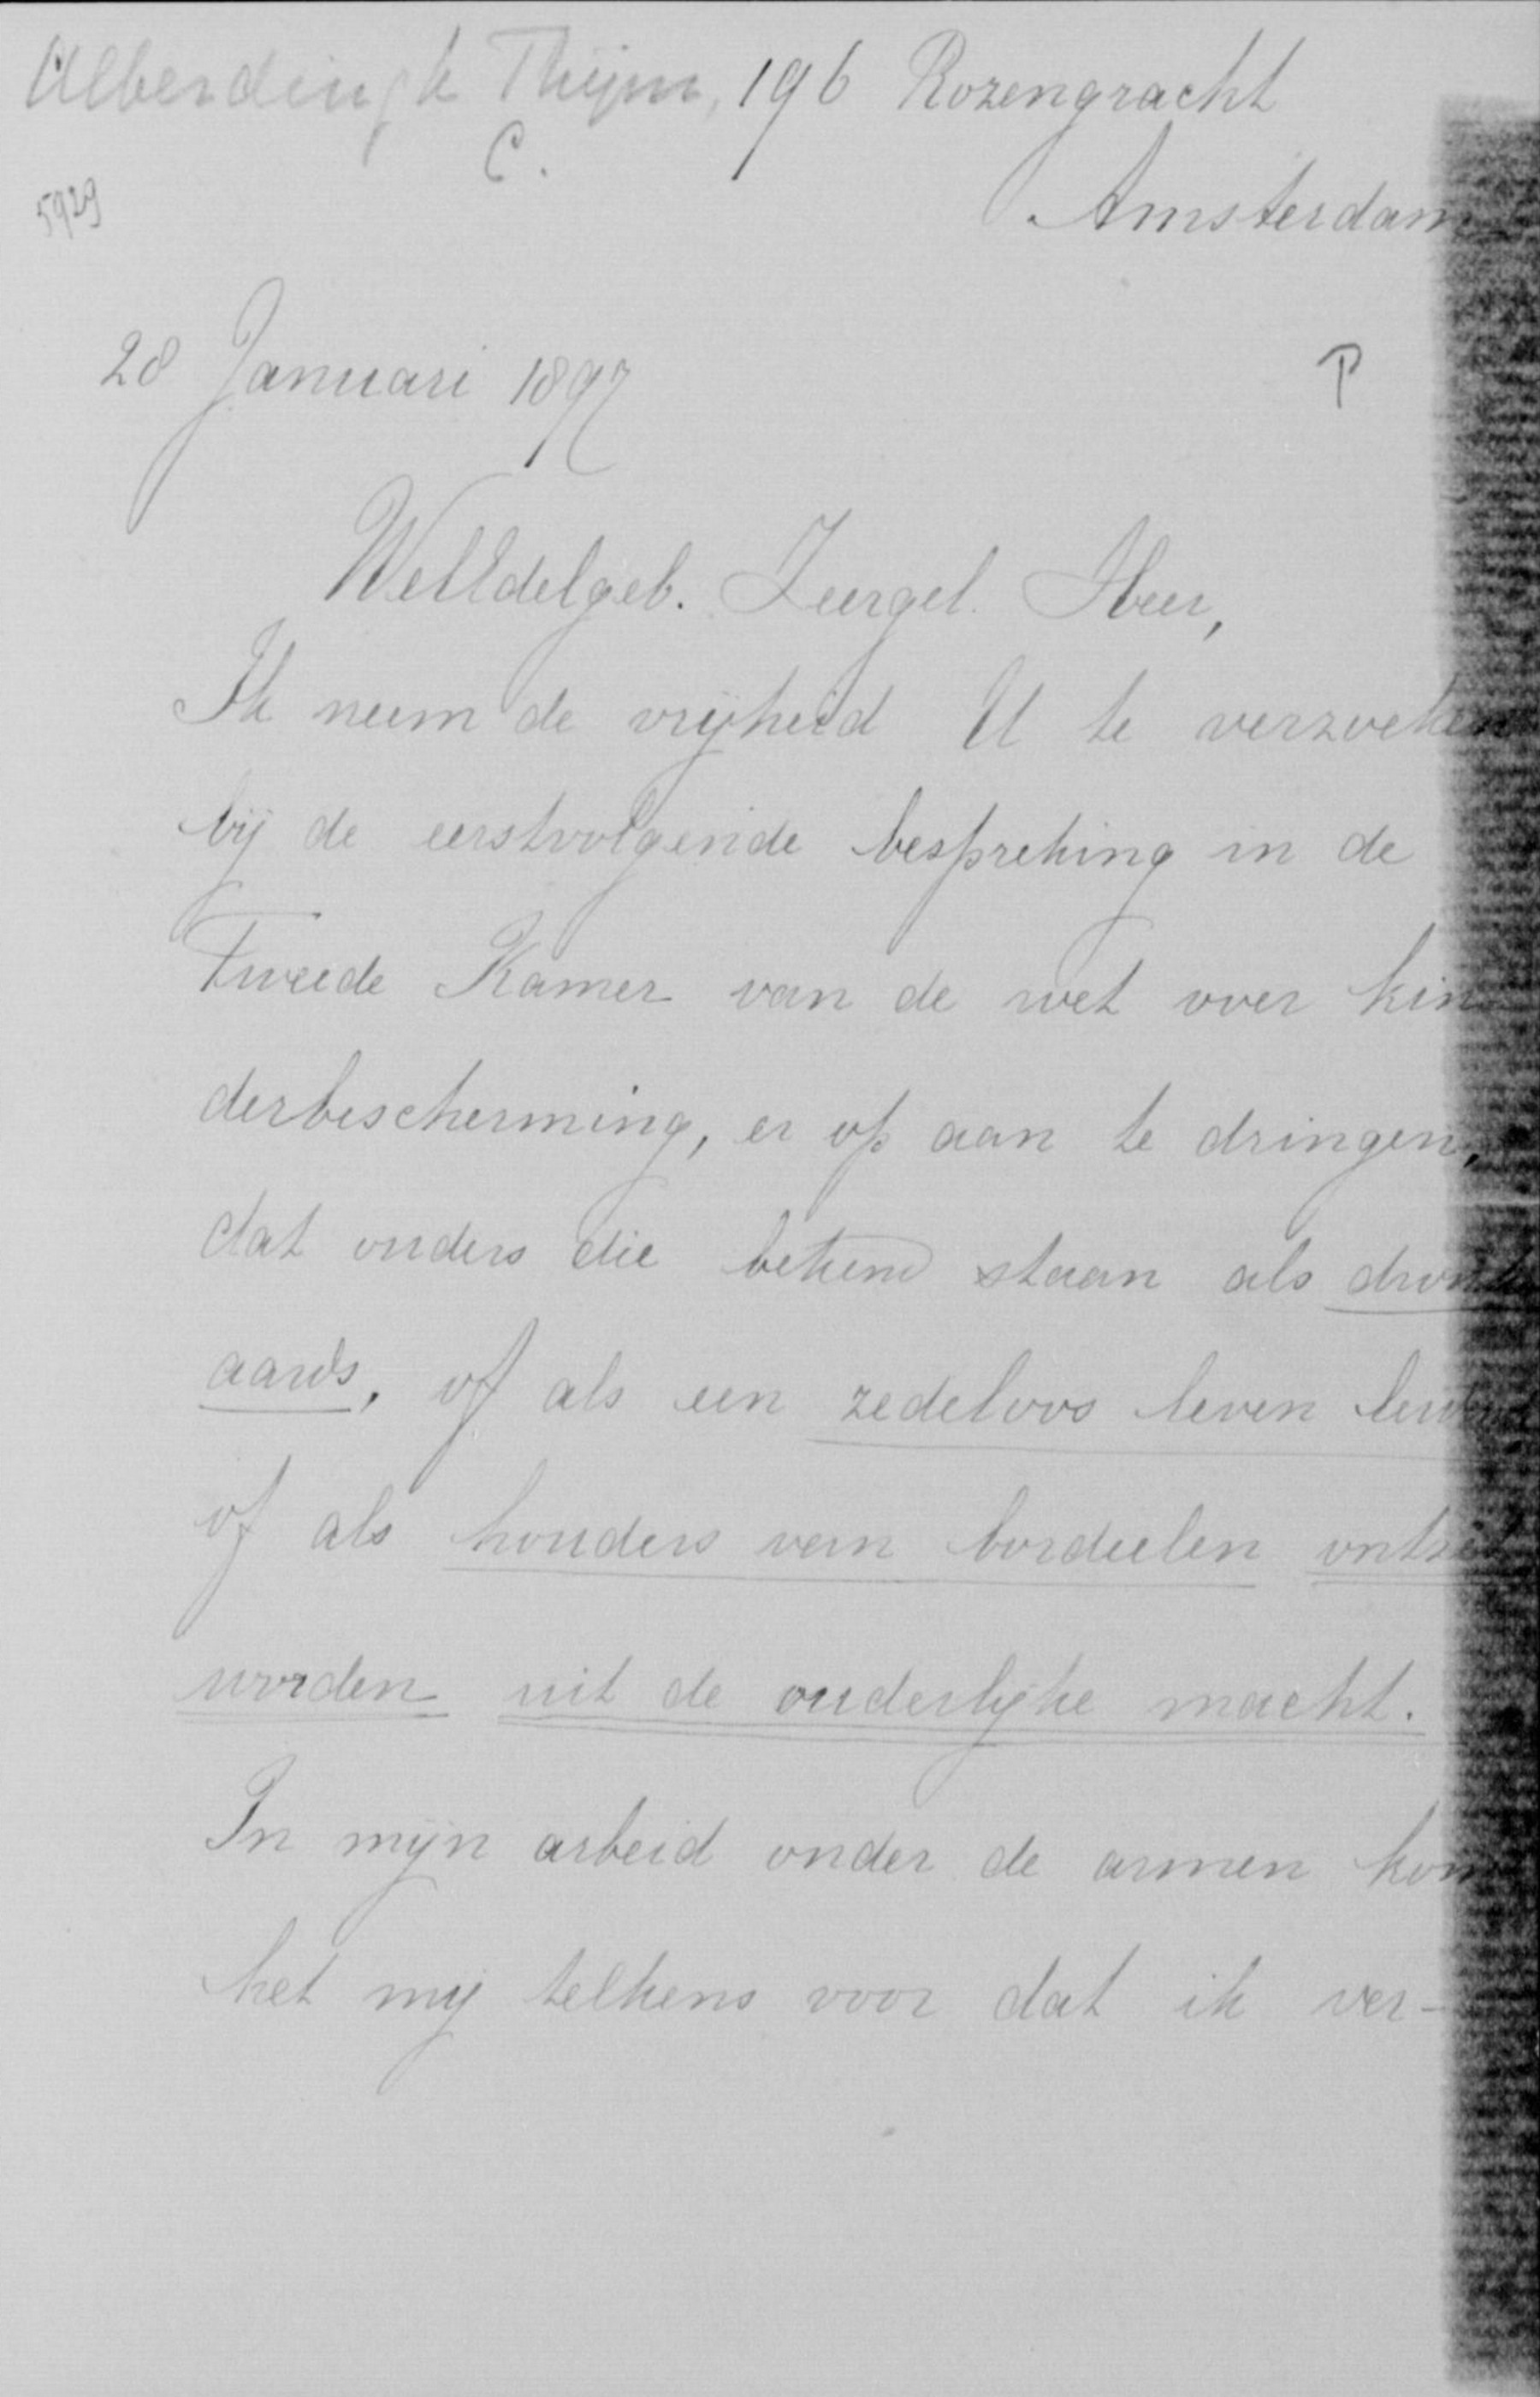 Alberdingk Thijm, 196 Rozengracht
C.
5929
Amsterdam
28 Januari 1897
P
WelEdelgeb. Zeergel. Heer,
Ik neem de vrijheid U te verzoeken
bij de eerstvolgende bespreking in de
Tweede Kamer van de wet over kin
derbescherming, er op aan te dringen,
dat ouders die bekend staan als dronk
aards, of als een zedeloos leven
of als houders van bordeelen
worden uit de ouderlijke macht.
In mijn arbeid onder de armen kom
het mij telkens voor dat ik ver-